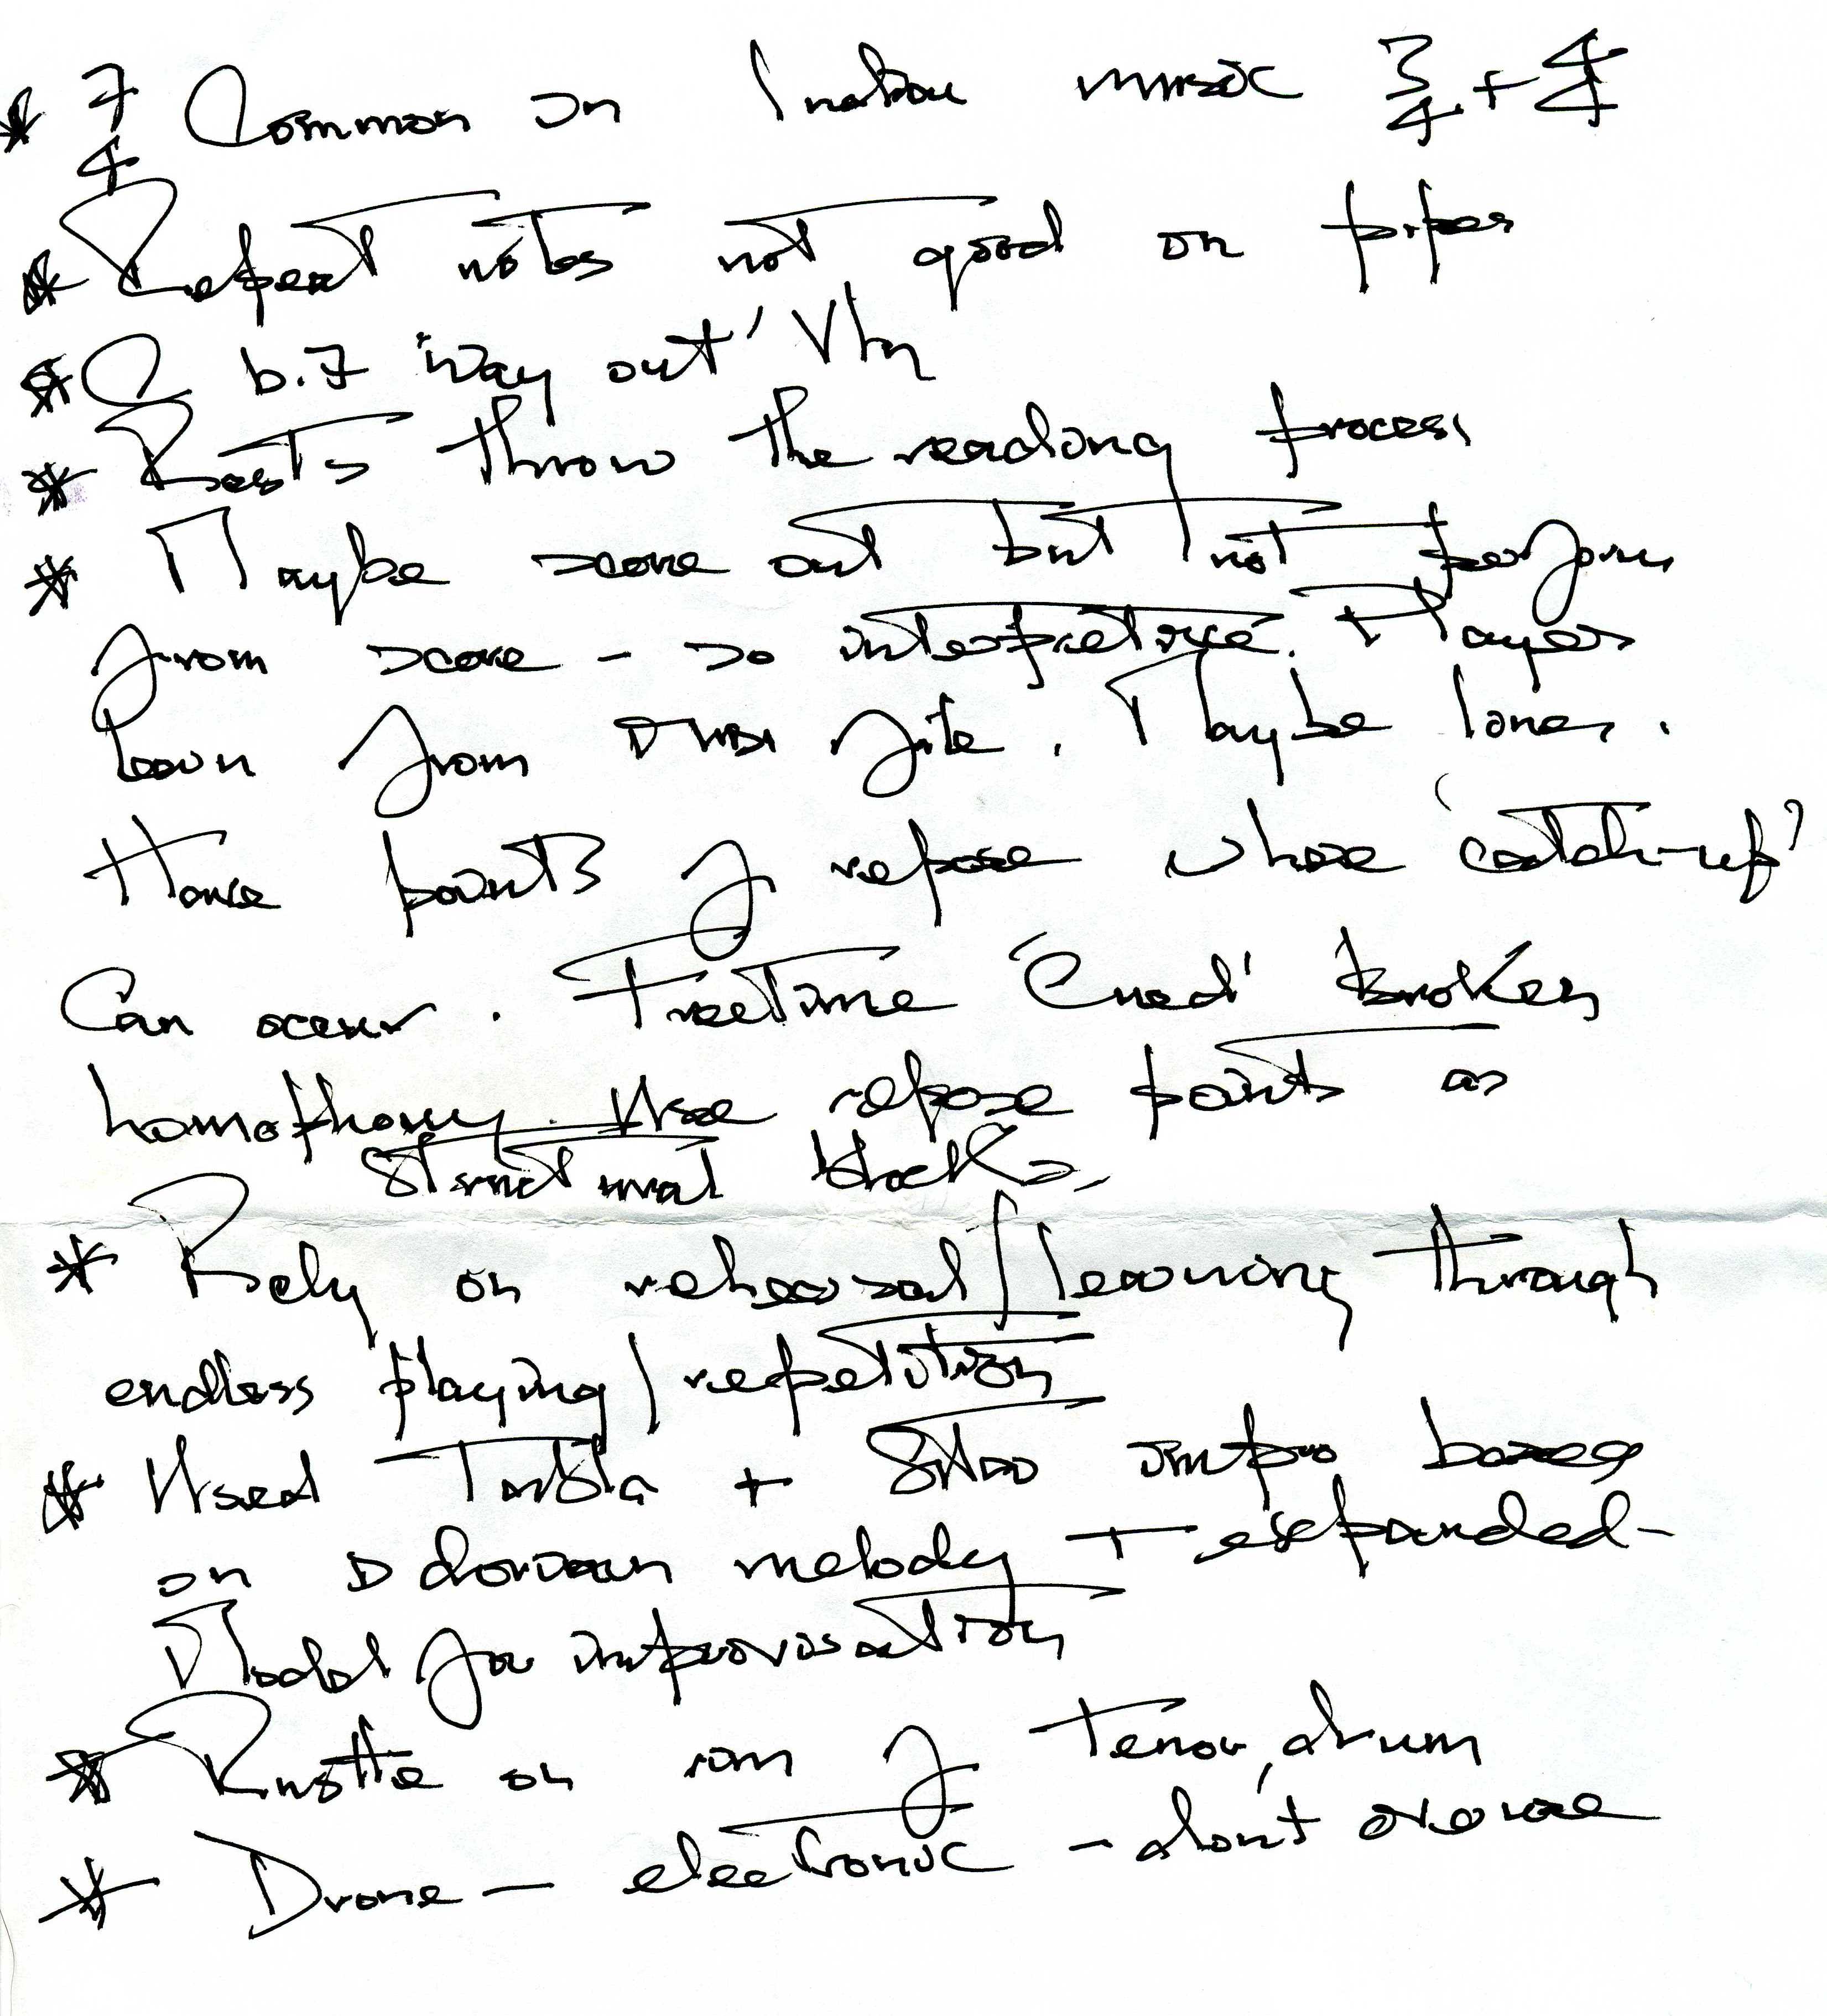 * 7/4 Common in Indian music 3/4 + 4/4
* Repeat notes not good on pipes
* b.7 'way out' Vln
* Rests throw the reading process
* Maybe score out but not perform
from score - so interpretive. Players
learn from file. Maybe lines.
Have points of repose where 'catch-up'
Can occur. Freetime 'Cued' broken
homophony. Use repose points as
structural blocks.
* Rely on rehearsal/learning through
endless playing/repetition
* Used Tabla + Sitar impro based
on D dorian melody - expanded -
Model for improvisation
* on rim of Tenor drum
* Drone - electronic - don't overuse